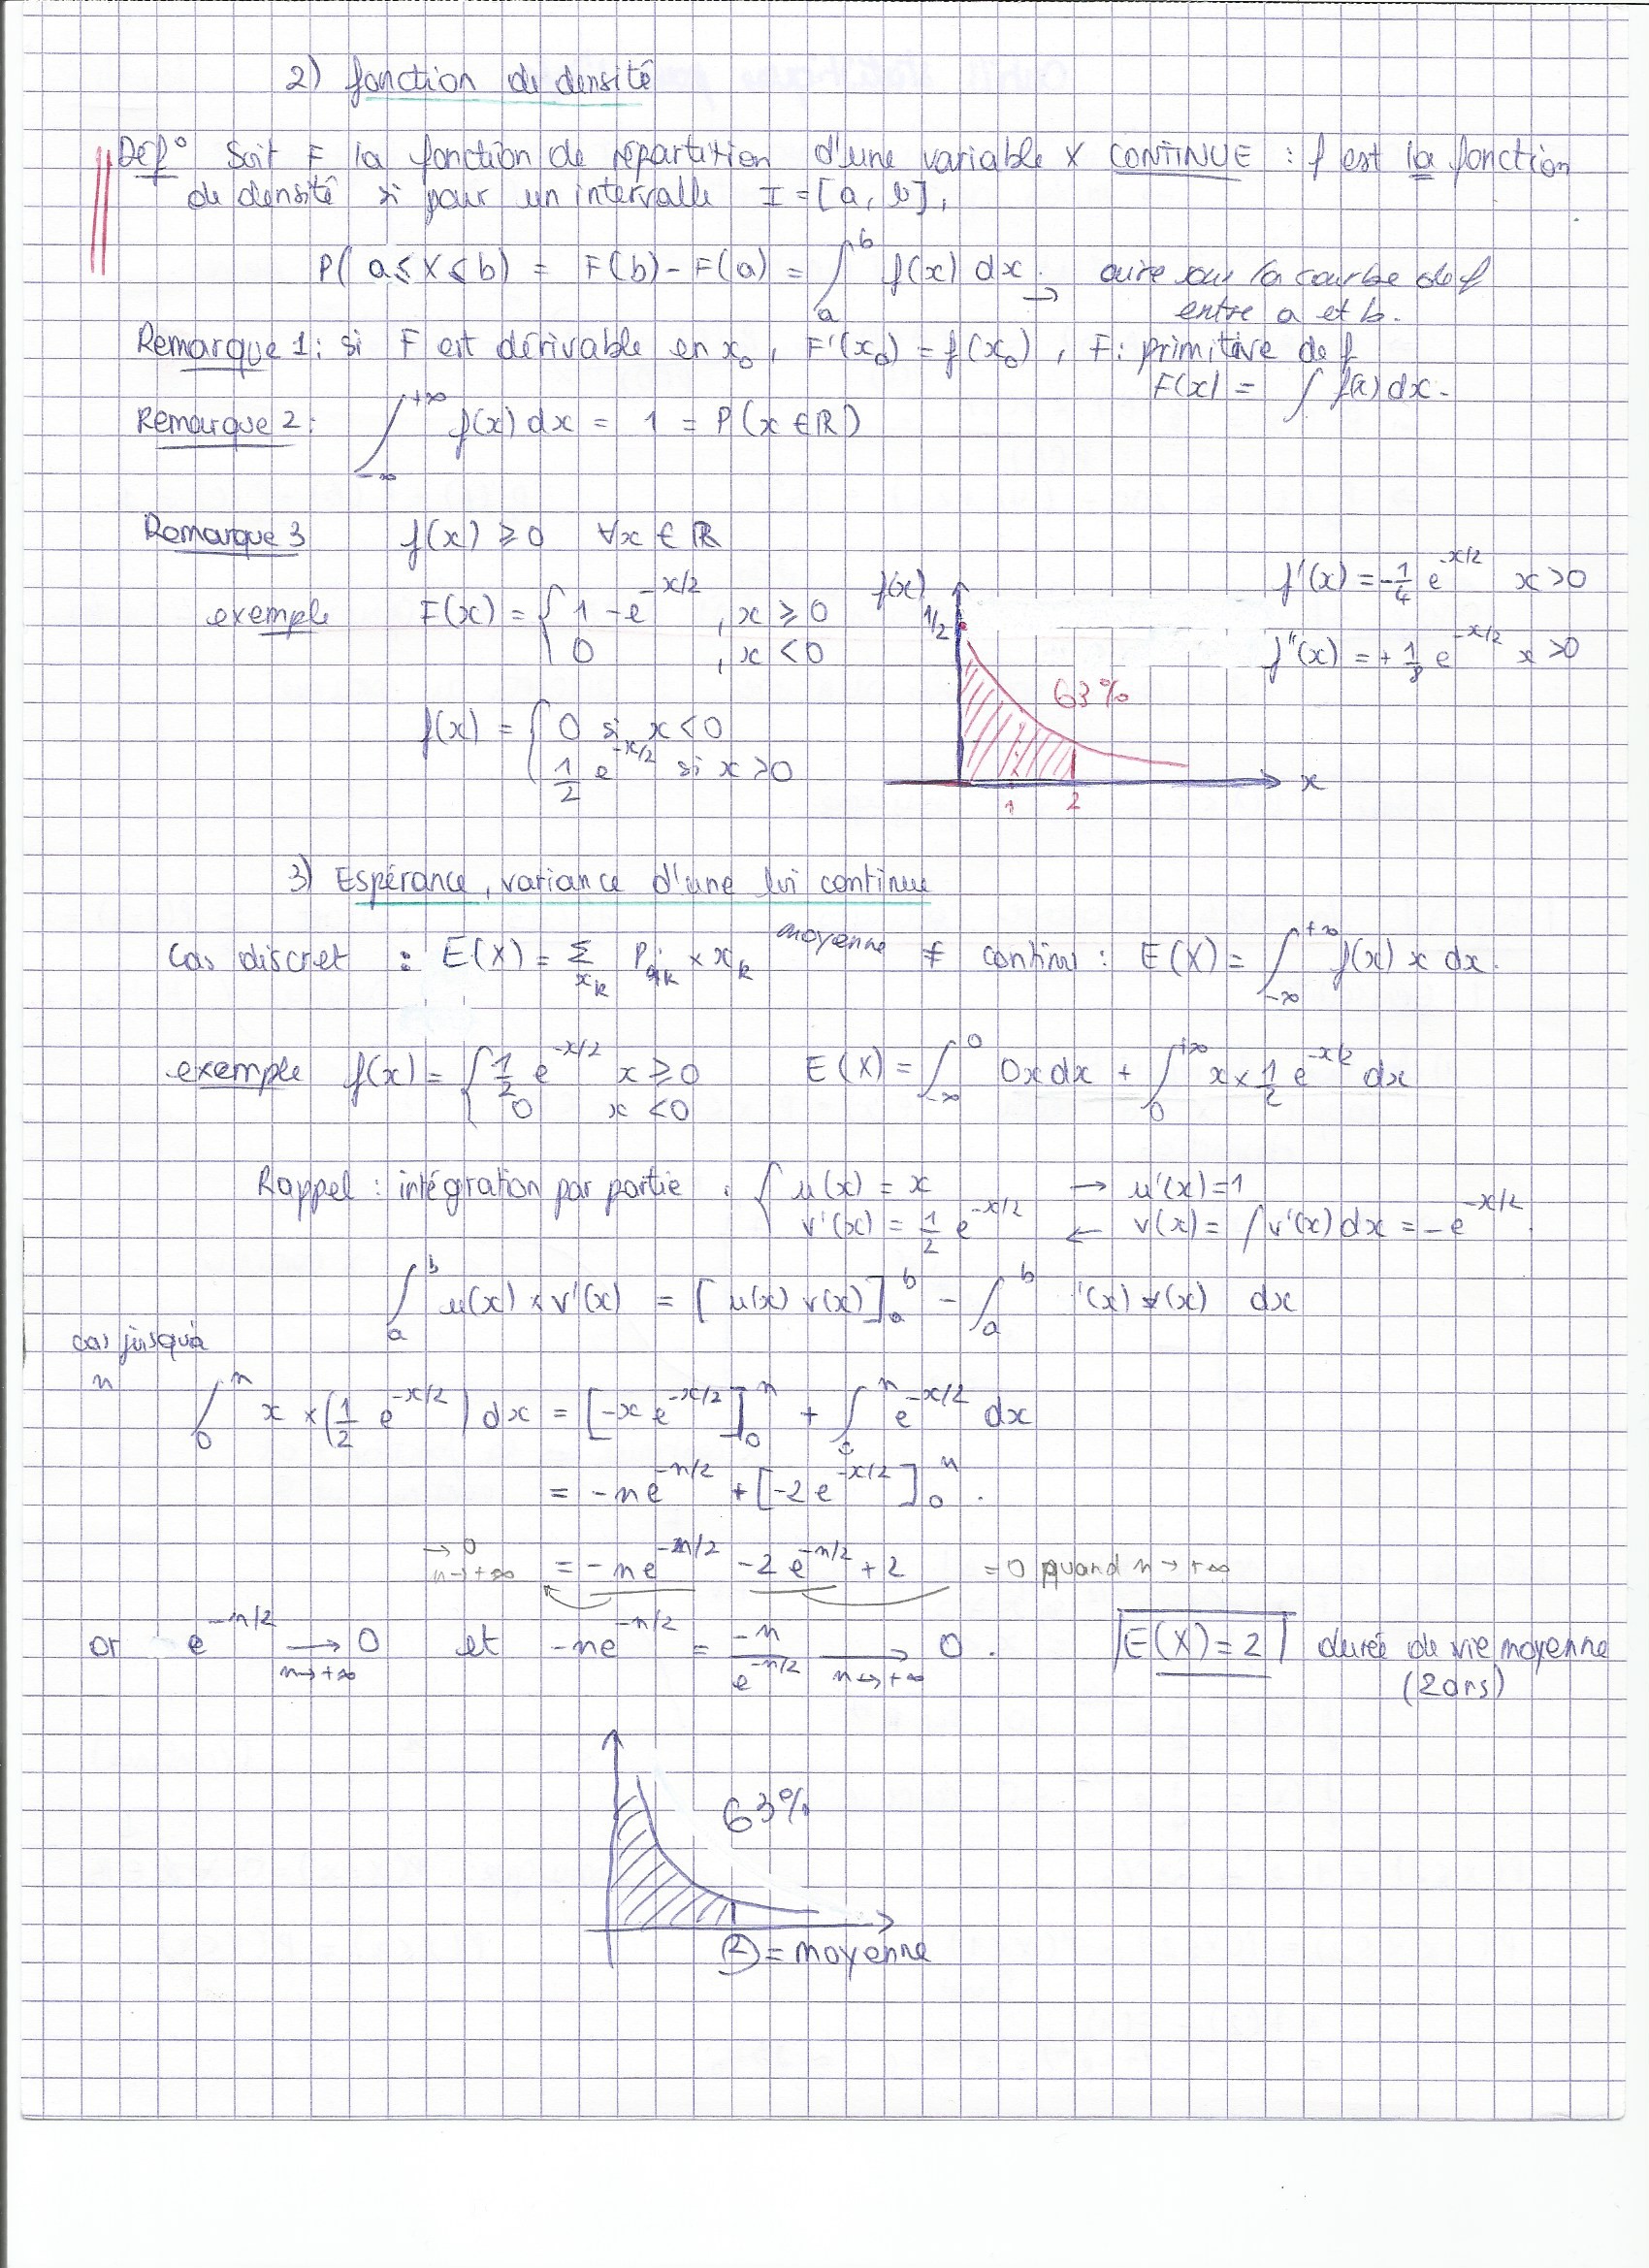 2) fonction de densité
Def° Soit F la fonction de répartition d'une variable X CONTINUE : f est la fonction
de densité si pour un intervalle I = [a, b],
P(a ≤ X ≤ b) = F(b) - F(a) = ∫_a^b f(x) dx. → aire sous la courbe de f
entre a et b.
Remarque 1: si F est dérivable en x₀, F'(x₀) = f(x₀), F: primitive de f
F(x) = ∫ f(x) dx.
Remarque 2: ∫_{-∞}^{+∞} f(x) dx = 1 = P(x ∈ ℝ)
Remarque 3 f(x) ≥ 0 ∀x ∈ ℝ
exemple F(x) = { 1 - e^{-x/2}, x ≥ 0
0, x < 0
f(x) = { 0 si x < 0
1/2 e^{-x/2} si x > 0
f(x)
1/2
63%
1 2
x
f'(x) = -1/4 e^{-x/2} x > 0
f''(x) = +1/8 e^{-x/2} x > 0
3) Espérance, variance d'une loi continue
Cas discret : E(X) = Σ_{x_k} P_k × x_k moyenne ≠ continu : E(X) = ∫_{-∞}^{+∞} f(x) x dx.
exemple f(x) = { 1/2 e^{-x/2} x ≥ 0
0 x < 0
E(X) = ∫_{-∞}^0 0x dx + ∫_0^{+∞} x × 1/2 e^{-x/2} dx
Rappel : intégration par partie . { u(x) = x → u'(x) = 1
v'(x) = 1/2 e^{-x/2} ← v(x) = ∫ v'(x) dx = -e^{-x/2}
∫_a^b u(x) × v'(x) = [u(x) v(x)]_a^b - ∫_a^b '(x) v(x) dx
cas jusqu'à
n
∫_0^n x × (1/2 e^{-x/2}) dx = [-x e^{-x/2}]_0^n + ∫_0^n e^{-x/2} dx
= -n e^{-n/2} + [-2 e^{-x/2}]_0^n .
→ 0 n→+∞ = -n e^{-n/2} - 2 e^{-n/2} + 2 = 0 quand n → +∞
or e^{-n/2} → 0 n→+∞ et -n e^{-n/2} = -n / e^{-n/2} → 0 n→+∞ . E(X) = 2 durée de vie moyenne
(2 ans)
63%
2 = moyenne